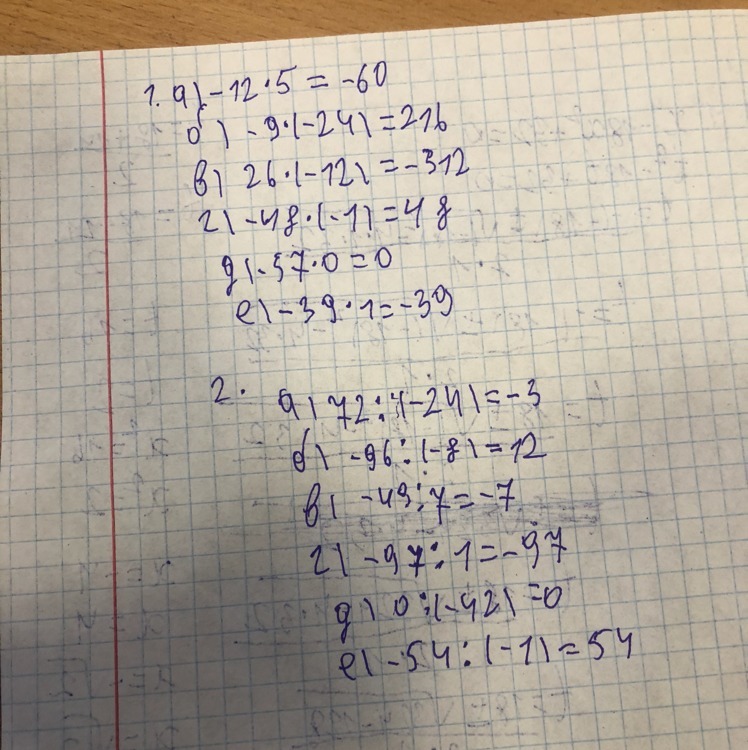 1. а) -12·5 = -60
б) -9·(-24) = 216
в) 26·(-12) = -312
г) -48·(-1) = 48
д) -57·0 = 0
е) -39·1 = -39
2. а) 72:(-24) = -3
б) -96:(-8) = 12
в) -49:7 = -7
г) -97:1 = -97
д) 0:(-42) = 0
е) -54:(-1) = 54